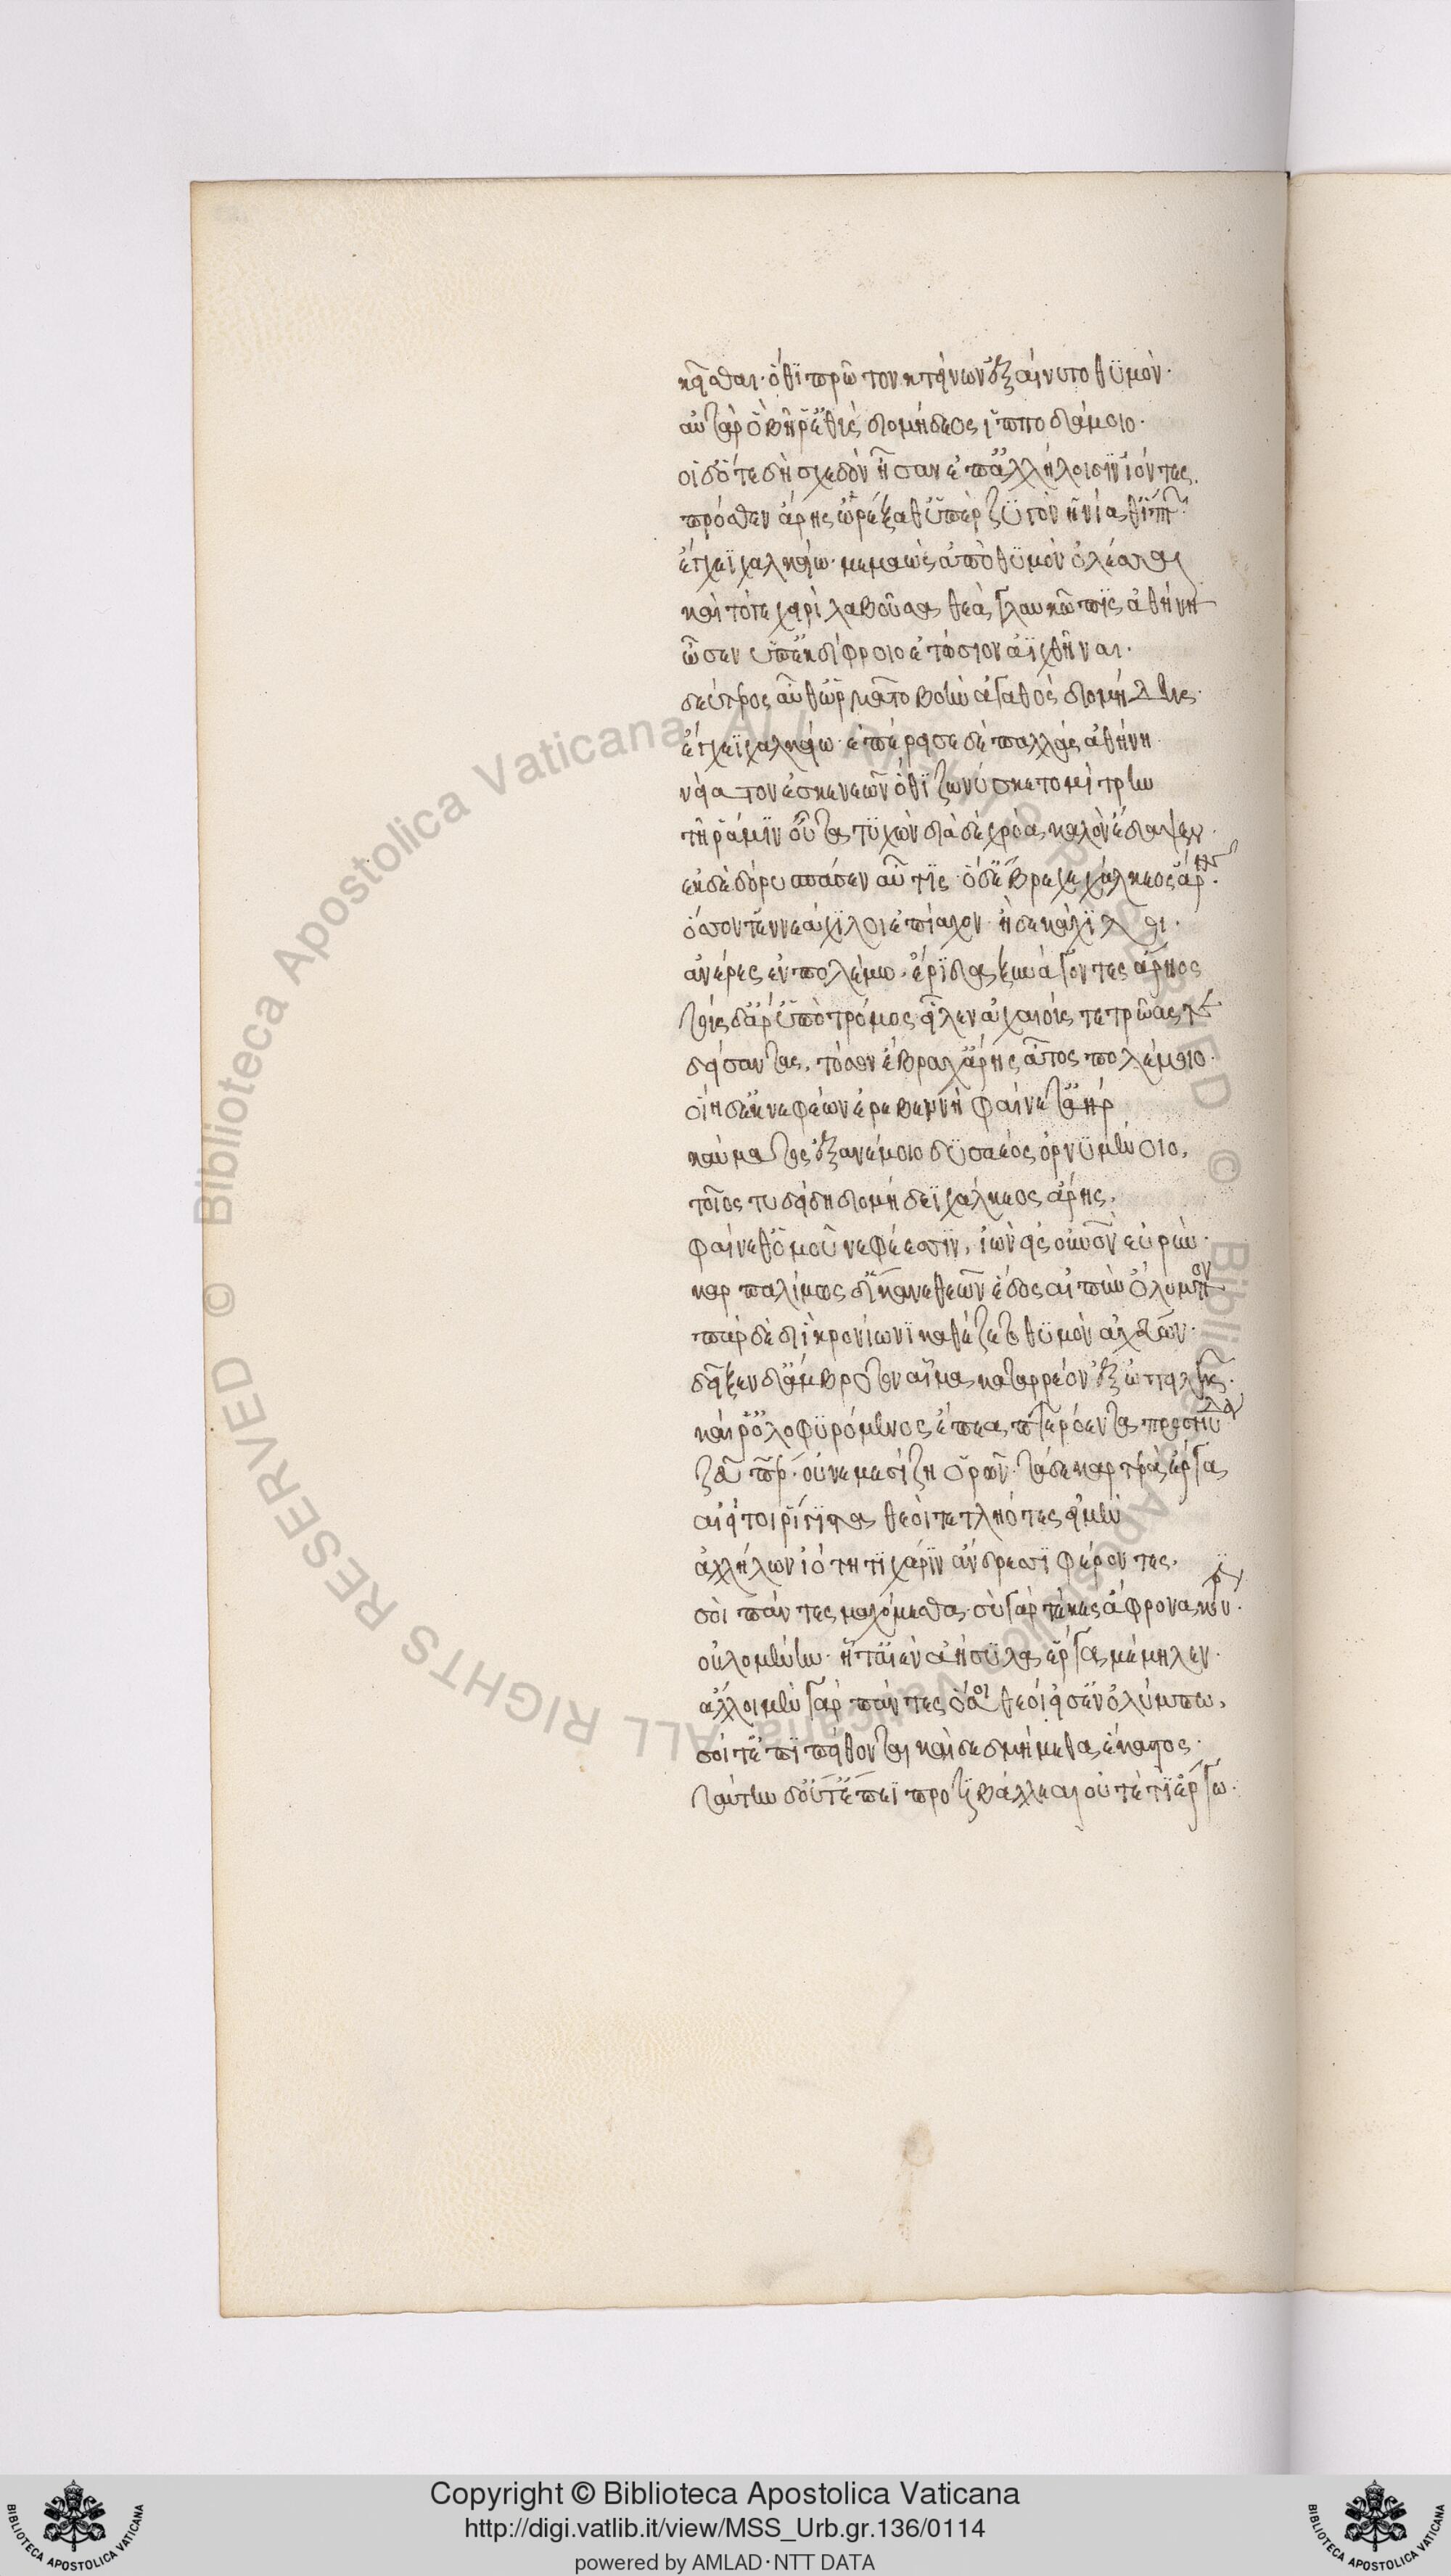 κεῖσθαι· ὅθι πρῶτον κτείνων ἐξαίνυτο θυμόν·
αὐτὰρ ὃ βῆ ῥ' ἰθὺς διομήδεος ἱπποδάμοιο·
οἱ δ' ὅτε δὴ σχεδὸν ἦσαν ἐπ' ἀλλήλοισιν ἰόντες.
πρόσθεν ἄρης ὠρέξαθ' ὑπὲρ ζυγὸν ἡνία θ' ἵππ
ἔγχεϊ χαλκείω· μεμαὼς ἀπὸ θυμὸν ὀλέσθαι
καὶ τότε χειρὶ λαβοῦσα θεὰ γλαυκῶπις ἀθήνη
ὦσεν ὑπ' ἐκ δίφροιο ἐτώσιον ἀϊχθῆναι·
δεύτερος αὖθ' ὡρμᾶτο βοὴν ἀγαθὸς διομήδης·
ἔγχεϊ χαλκείω· ἐπέρεισε δὲ παλλὰς ἀθήνη
νείατον ἐς κενεῶν' ὅθι ζωνύσκετο μίτρην
τῆ ῥά μιν οὖτα τυχὼν διὰ δὲ χρόα καλὸν ἔδαψεν·
ἐκ δὲ δόρυ σπάσεν αὖτις· ὁ δ' ἔβραχε χάλκεος ἄρης·
ὅσσον τ' ἐννεάχιλοι ἐπίαχον ἢ δεκάχιλοι·
ἀνέρες ἐν πολέμω· ἔριδα ξυνάγοντες ἄρηος
τοὺς δ' ἄρ' ὑπὸ τρόμος εἷλεν ἀχαιούς τε τρῶάς τε
δείσαντας· τόσον ἔβραχ' ἄρης ἆτος πολέμοιο·
οἵη δ' ἐκ νεφέων ἐρεβεννὴ φαίνετ' ἀὴρ
καύματος ἐξ ἀνέμοιο δυσαέος ὀρνυμένοιο,
τοῖος τυδείδη διομήδεϊ χάλκεος ἄρης.
φαίνεθ' ὁμοῦ νεφέεσσιν, ἰὼν εἰς οὐρανὸν εὐρύν·
καρπαλίμως δ' ἵκανε θεῶν ἕδος αἰπὺν ὄλυμπον
πὰρ δὲ διὶ κρονίωνι καθέζετο θυμὸν ἀχεύων·
δεῖξεν δ' ἄμβροτον αἷμα καταρρέον ἐξ ὠτειλῆς·
καί ῥ' ὀλοφυρόμενος ἔπεα πτερόεντα προσηύδα
ζεῦ περ· οὐ νεμεσίζη ὁρῶν τάδε καρτερὰ ἔργα
αἰεί τοι ῥίγιστα θεοὶ τετληότες εἰμὲν
ἀλλήλων ἰότητι χάριν ἄνδρεσσι φέροντες.
σοὶ πάντες μαχόμεσθα· σὺ γὰρ τέκες ἄφρονα κούρην·
οὐλομένην· ἧ τ' αἰὲν ἀήσυλα ἔργα μέμηλεν·
ἄλλοι μὲν γὰρ πάντες ὅσοι θεοί εἰσ' ἐν ὀλύμπω,
σοί τ' ἐπιπείθονται καὶ δεδμήμεθα ἕκαστος·
ταύτην δ' οὔτ' ἔπεϊ προτιβάλλεαι οὔτέ τι ἔργω·